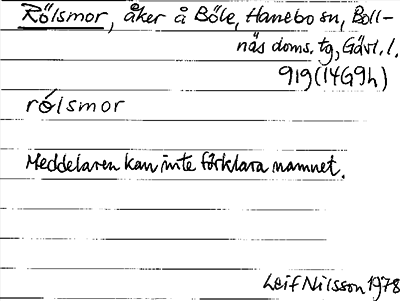 Rölsmor, åker å Böle, Hanebo sn, Boll-
näs doms. tg, Gävl. l.
919 (14G9h)
rólsmor
Meddelaren kan inte förklara namnet.
Leif Nilsson 1978